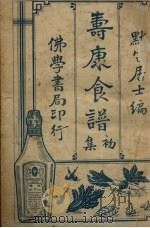 默々居士編
壽康食譜
初集
佛學書局印行